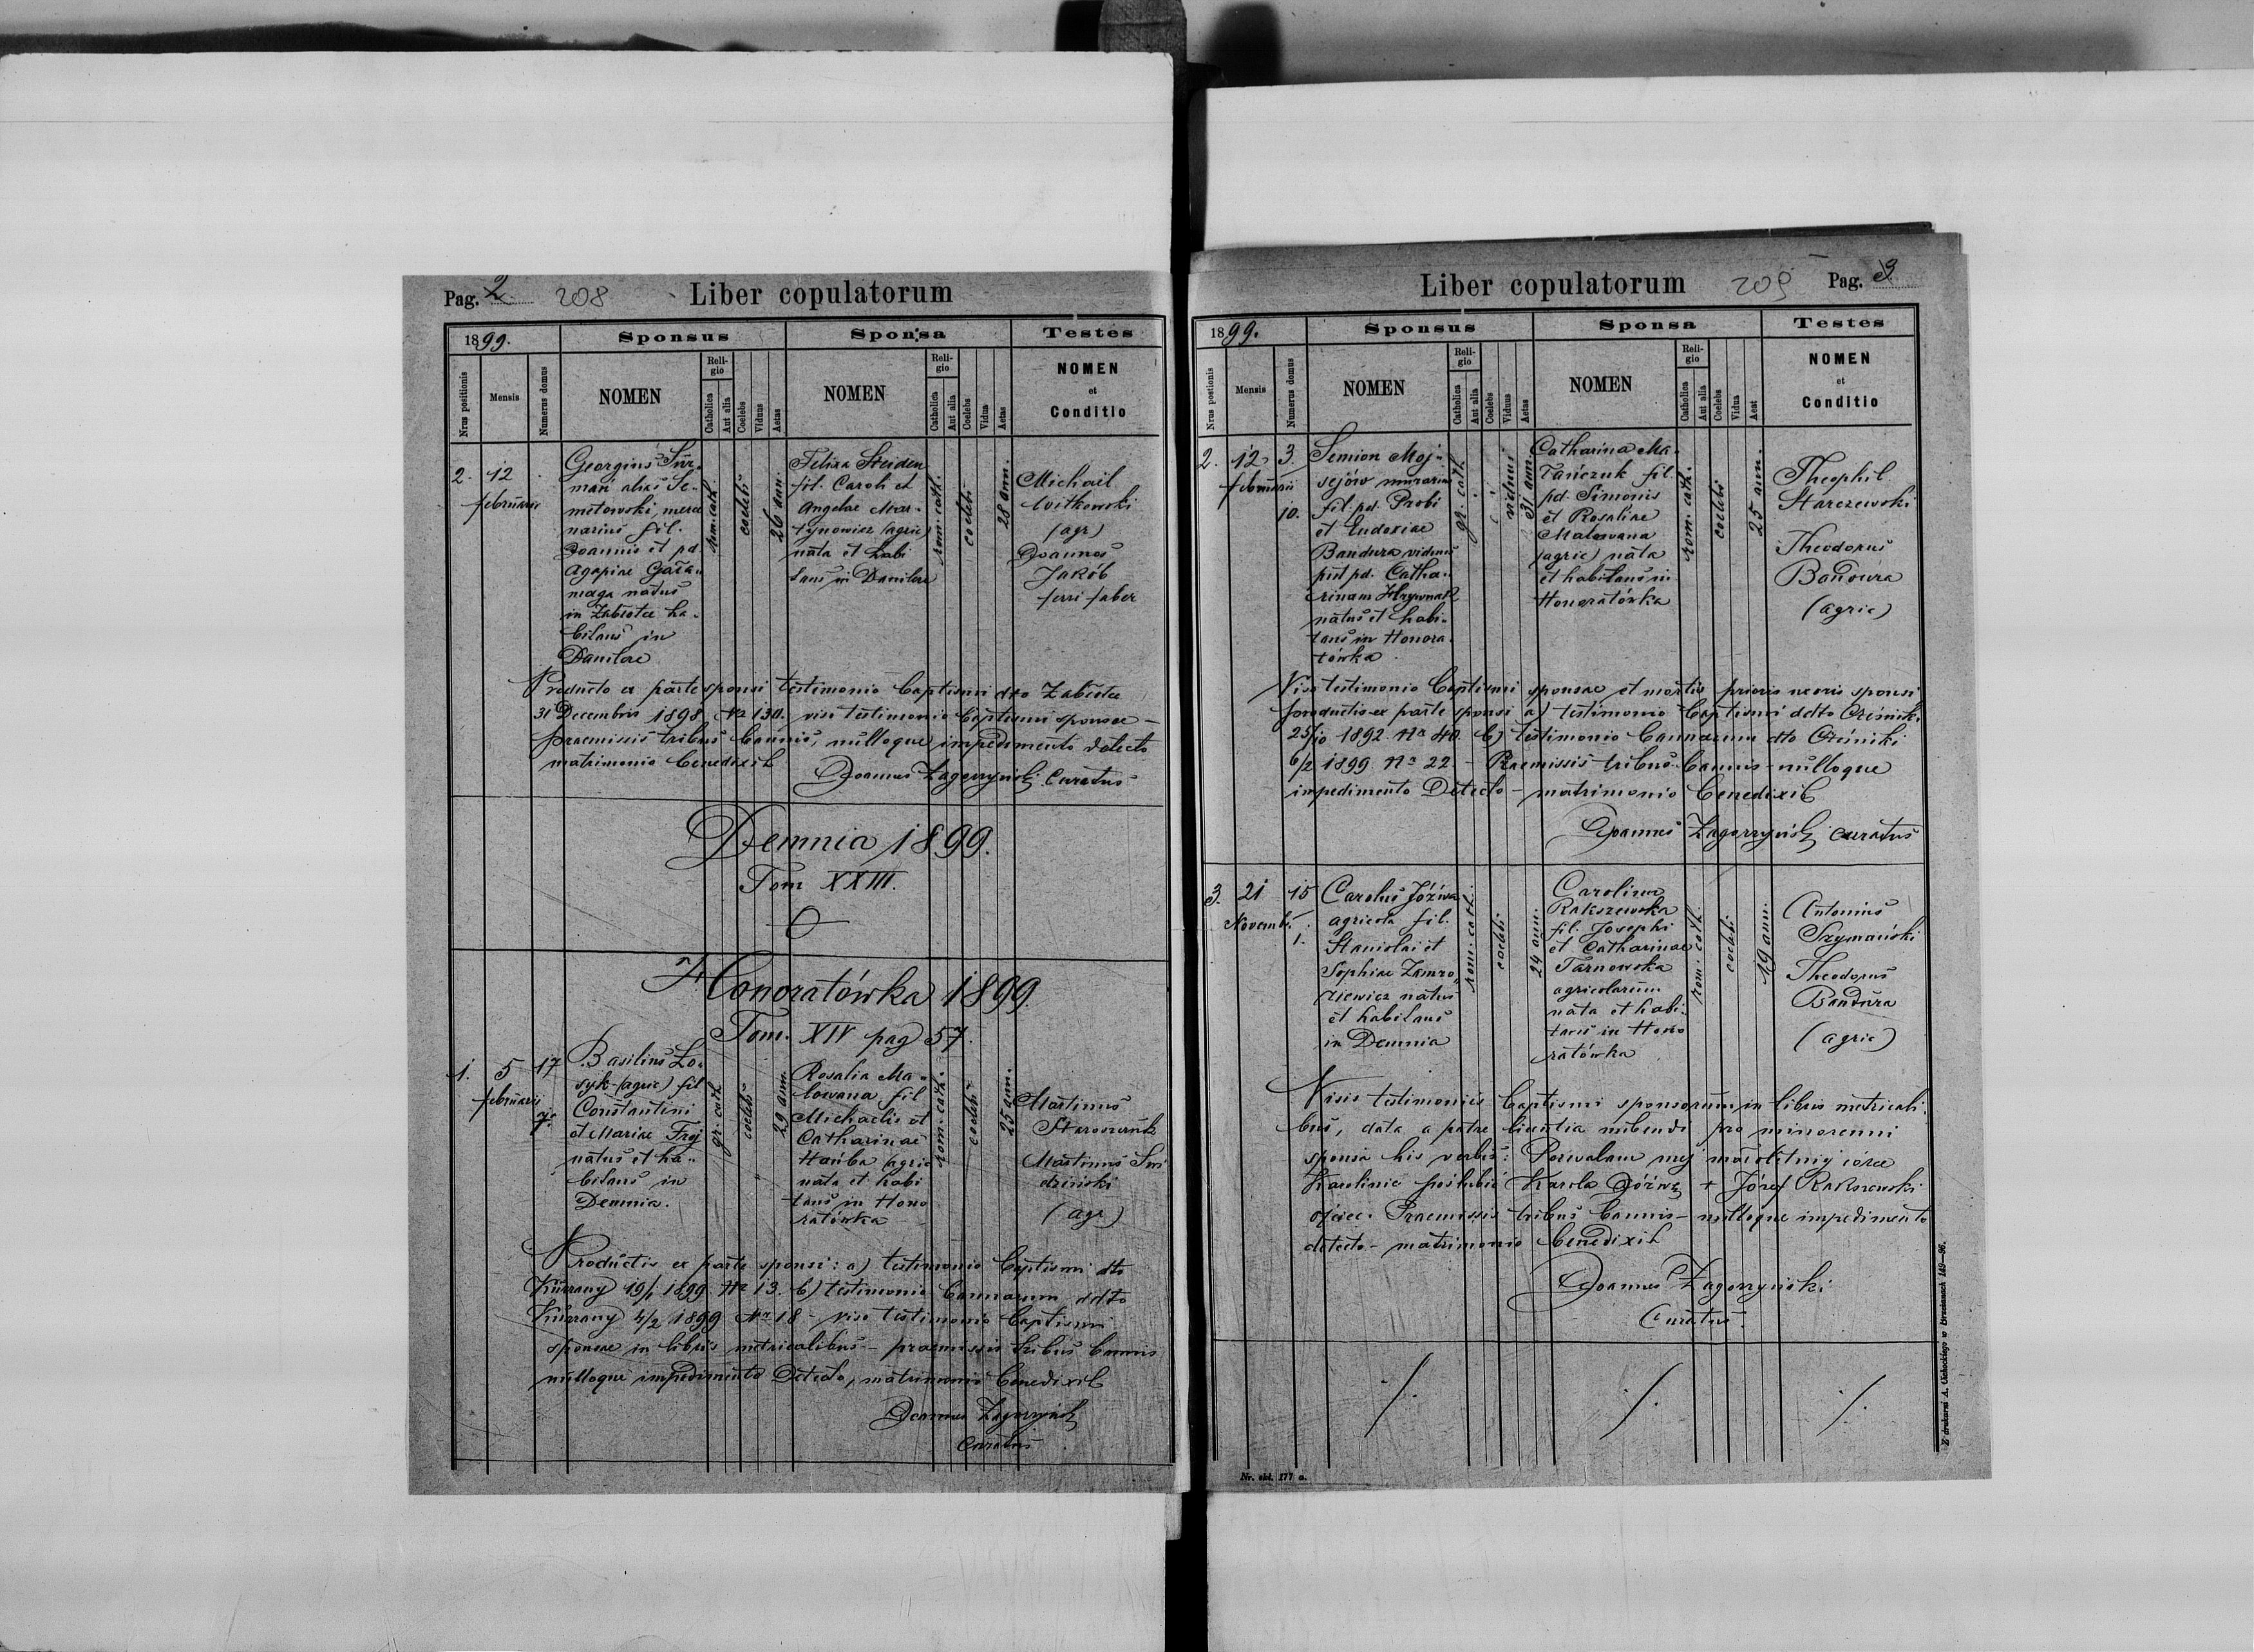 Pag. 2 208 Liber copulatorum
1899. Sponsus Sponsa Testes
Nrus positionis Mensis Numerus domus NOMEN Religio Catholica Aut alia Coelebs Viduus Aetas NOMEN Religio Catholica Aut alia Coelebs Vidua Aetas NOMEN et Conditio
2. 12 februarii
Georgius
mari alias Se-
metowski, merce
narius fil.
Joannis et pd
Agapiae
natus
in ha-
bitans in
Danilcze
rom. cath.
coelebs
26 ann.
Felixa Steiden
fil. Caroli et
Angelae Mar-
tynowicz (agric)
nata et habi
tans in Danilcze
rom. cath.
coelebs
28 ann.
Michaël
Witkowski
(agr)
Joannes
Jakób
ferri faber
Producto ex parte sponsi testimonio baptismi dto
31 Decembris 1898 Nr 130. viso testimonio baptismi sponsae -
praemissis tribus bannis, nulloque impedimento detecto
matrimonio benedixit
Joannes Zagorzyński Curatus
Demnia 1899.
Tom XXIII.
Honoratówka 1899.
Tom. XIV pag 57.
1. 5 februarii 17
Basilius Lo-
syk (agric) fil
Constantini
et Mariae Froj
natus et ha-
bitans in
Demnia.
gr. cath
coelebs
29 ann.
Rosalia Ma-
lowana fil
Michaelis et
Catharinae
Hańba (agric
nata et habi
tans in Hono
ratówka
rom. cath.
coelebs
25 ann.
Martinus
Martinus
(agr)
Productis ex parte sponsi: a) testimonio baptismi dto
Kurzany 19/1 1899 Nr 13. b) testimonio bannorum ddto
Kurzany 4/2 1899 Nr 18 - viso testimonio baptismi
sponsae in libris metricalibus - praemissis tribus bannis
nulloque impedimento detecto, matrimonio benedixit
Joannes Zagorzyński
Curatus
Liber copulatorum 209 Pag. 3
1899. Sponsus Sponsa Testes
Nrus postionis Mensis Numerus domus NOMEN Religio Catholica Aut alia Coelebs Viduus Aetas NOMEN Religio Catholica Aut alia Coelebs Vidua Aeat NOMEN et Conditio
2. 12 februarii 3. 10.
Semion Moj-
sejów murarius
fil. pd. Probi
et Eudoxiae
Bandura viduus
post pd. Catha-
rinam Hrywnak
natus et habi-
tans in Honora-
tówka
gr. cath.
viduus
31 ann.
Catharina Ma-
tańczuk fil.
pd. Simonis
et Rosaliae
Malowana
(agric) nata
et habitans in
Honoratówka
rom. cath.
coelebs
25 ann.
Theophil
Starczewski
Theodorus
Bandura
(agric)
Viso testimonio baptismi sponsae et mortis prioris uxoris sponsi
productis ex parte sponsi a) testimonio baptismi ddto
25/10 1892 Nr 40. b) testimonio bannorum dto
6/2 1899 Nr 22 - Praemissis tribus bannis - nulloque
impedimento detecto - matrimonio benedixit
Joannes Zagorzyński curatus
3. 21 Novemb. 15 1.
Carolus Jóźwa
agricola fil.
Stanislai et
Sophiae Zamro-
ziewicz natus
et habitans
in Demnia
rom. cath.
coelebs
24 ann.
Carolina
Rakszewska
fil. Josephi
et Catharinae
Tarnowska
agricolarum
nata et habi-
tans in Hono
ratówka
rom. cath.
coelebs
19 ann.
Antonius
Szymański
Theodorus
Bandura
(agric)
Visis testimoniis baptismi sponsorum in libris metricali-
bus, data a patre licentia nubendi pro minorenni
sponsa his verbis: Pozwalam mej małoletniej córce
Karolinie poślubić Karola Jóźwę + Józef Rakszewski
ojciec. Praemissis tribus bannis - nulloque impedimento
detecto - matrimonio benedixit
Joannes Zagorzyński
Curatus.
Nr. skł. 177 a.
Z drukarni A. w Brzeżanach 149—96.